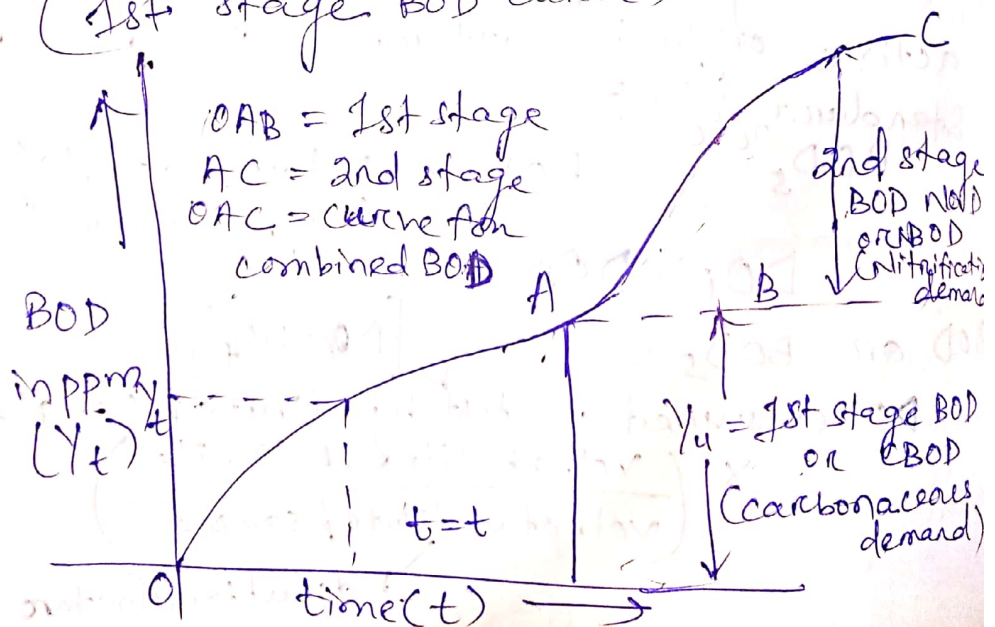 (1st stage BOD
OAB = 1st stage
AC = 2nd stage
OAC = curve for
combined BOD
C
2nd stage
BOD NOD
or NBOD
(Nitrification
demand
A
B
BOD
in ppm yt
(Yt)
t=t
Yu = 1st stage BOD
or CBOD
(carbonaceous
demand)
O
time(t)